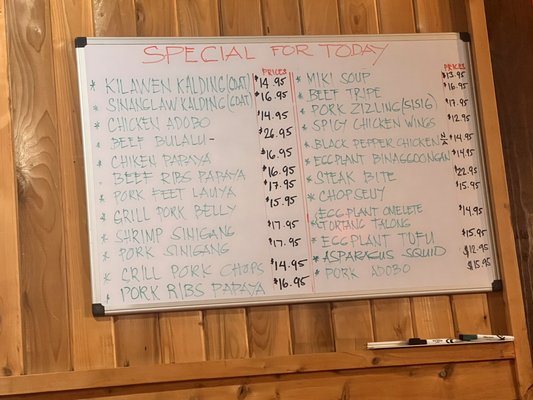 SPECIAL FOR TODAY
PRICES
* KILAWEN KALDING (GOAT) $14.95
* SINANGLAW KALDING (GOAT) $16.95
* CHICKEN ADOBO $14.95
* BEEF BULALU - $26.95
* CHIKEN PAPAYA $16.95
* BEEF RIBS PAPAYA $16.95
* PORK FEET LAUYA $17.95
* GRILL PORK BELLY $15.95
* SHRIMP SINIGANG $17.95
* PORK SINIGANG $17.95
* GRILL PORK CHOPS $14.95
* PORK RIBS PAPAYA $16.95
PRICES
* MIKI SOUP $13.95
* BEEF TRIPE $16.95
* PORK ZIZLING (SISIG) $17.95
* SPICY CHICKEN WINGS $12.95
* BLACK PEPPER CHICKEN $14.95
* EGGPLANT BINAGGOONGAN $14.95
* STEAK BITE $22.95
* CHOPSEUY $15.95
EGGPLANT OMELETE
* TORTANG TALONG $14.95
* EGGPLANT TUFU $15.95
* ASPARAGUS SQUID $12.95
* PORK ADOBO $15.95